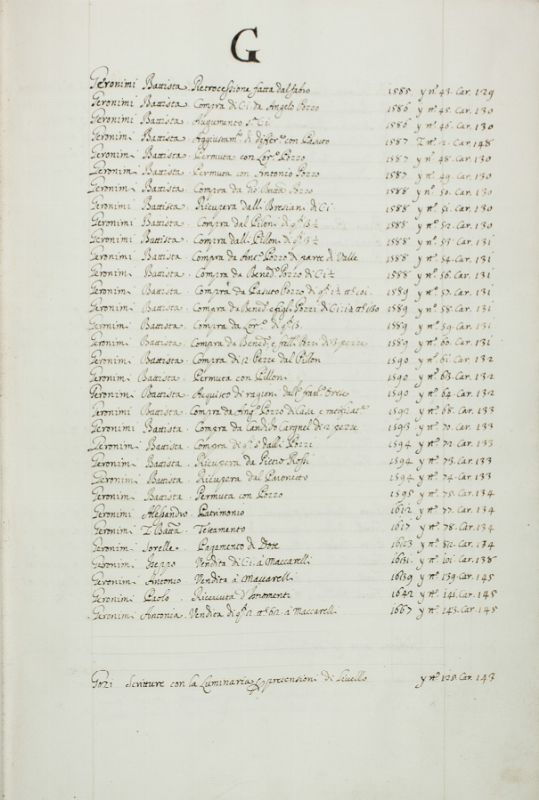 G
Geronimi Battista. Retrocessione fatta dal fabio 1585 y n.º 43. Car. 129
Geronimi Battista. Compra di C.i da Angelo Pozzo 1586 y nº. 45. Car. 130
Geronimi Battista. Augumento 1586 y nº. 46. Car. 130
Geronimi Battista. Aggiustam.º di differ.e con Pasuto 1587 nº. 2. Car. 148
Geronimi Battista. Permuta con Lor.º Pozzo 1587 y nº. 48. Car. 130
Geronimi Battista. Permuta con Antonio Pozzo 1587 y nº. 49. Car. 130
Geronimi Battista. Compra da Pozzo 1588 y nº. 50. Car. 130
Geronimi Battista. Ricupera dalli Bresiani di C.i 1588 y nº. 51. Car. 130
Geronimi Battista. Compra dal Pillon di 1588 y nº. 52. Car. 130
Geronimi Battista. Compra dall Pillon di 1588 y nº. 53. Car. 131
Geronimi Battista. Compra da Ant.º Pozzo di parte di Valle 1588 y nº. 54. Car. 131
Geronimi Battista. Compra da Bened.º Pozzo di C.i 1588 y nº. 56. Car. 131
Geronimi Battista. Compra da Pasuto Pozzo di 1589 y nº. 57. Car. 131
Geronimi Battista. Compra da Bened.º e figli Pozzi di C.i 1589 y nº. 58. Car. 131
Geronimi Battista. Compra da Lor.º di 1589 y nº. 59. Car. 131
Geronimi Battista. Compra da Bened.º e frelli Pozzi di 3 pezze 1589 y nº. 60. Car. 131
Geronimi Battista. Compra di 2 Pezze dal Pillon 1590 y nº. 61. Car. 132
Geronimi Battista. Permuta con Pillon 1590 y nº. 63. Car. 132
Geronimi Battista. Acquisto di ragioni dall 1590 y nº. 64. Car. 132
Geronimi Battista. Compra da Ang.º Pozzo di Casa e 1592 y nº. 68. Car. 133
Geronimi Battista. Compra da Candido Cargnel di 2 pezze 1593 y nº. 70. Car. 133
Geronimi Battista. Compra di dalli Pozzi 1594 y nº. 72. Car. 133
Geronimi Battista. Ricupera da Pietro Rossi 1594 y nº. 73. Car. 133
Geronimi Battista. Ricupera dal 1594 y nº. 74. Car. 133
Geronimi Battista. Permuta con Pozzo 1595 y nº. 75. Car. 134
Geronimi Alessandro. Patrimonio 1612 y nº. 77. Car. 134
Geronimi Batta. Testamento 1617 y nº. 78. Car. 134
Geronimi Sorelle. Pagamento di Dote 1623 y nº. 82. Car. 134
Geronimi Iseppo. Vendita di C.i à Maccarelli 1631 y nº. 101. Car. 138
Geronimi Antonio. Vendita à Maccarelli 1639 y nº. 139. Car. 145
Geronimi Paolo. Ricevuta d'Istromenti 1642 y nº. 141. Car. 145
Geronimi Antonia. Vendita di à Maccarelli 1667 y nº. 143. Car. 145
Gozi Scritture con la Luminaria pretensioni di Livello y nº. 125. Car. 143